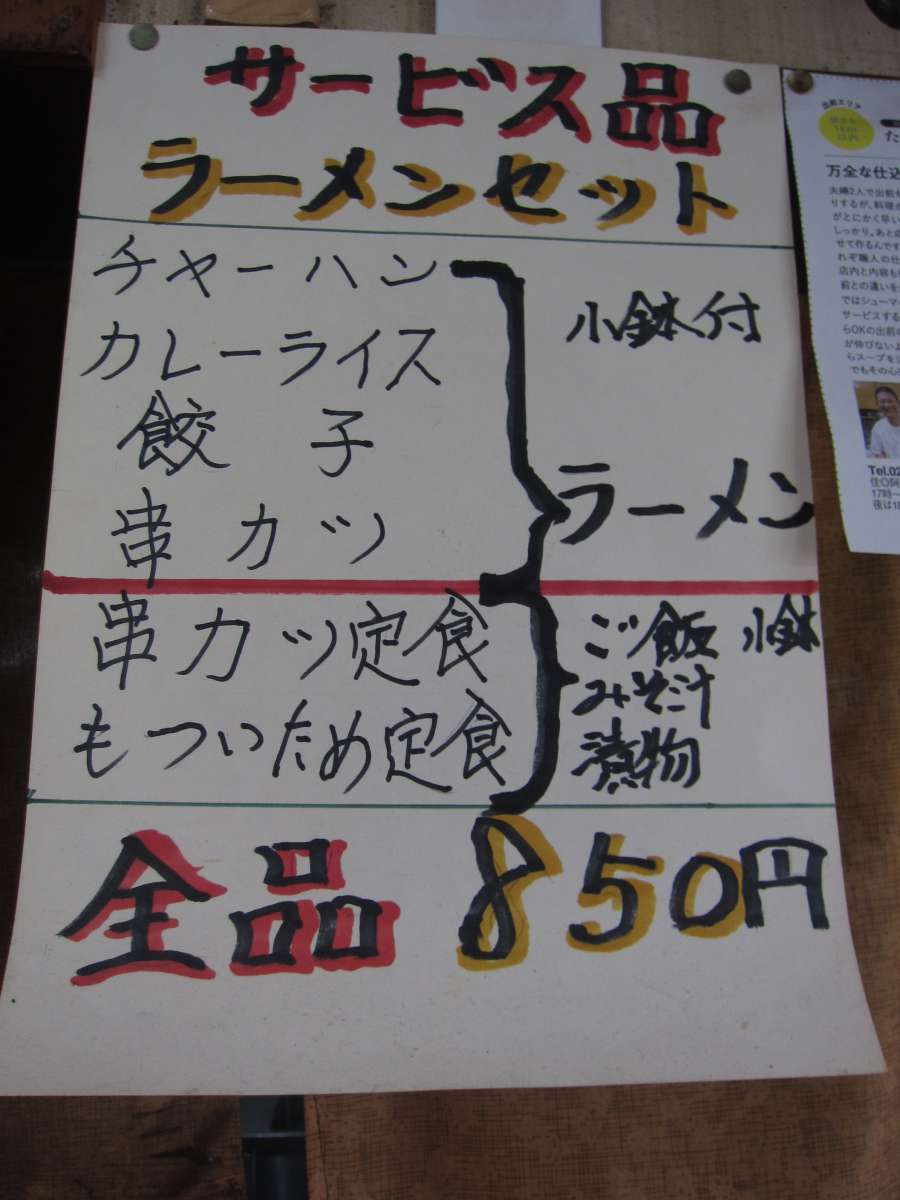 サービス品
ラーメンセット
チャーハン
カレーライス
餃子
串カツ
小鉢付
ラーメン
串カツ定食
もついため定食
ご飯 小鉢
みそ汁
漬物
全品 850円
出前エリア
万全な仕込
夫婦2人で出前を
りするが、料理が
がとにかく早い
しっかり。あと店
せて作るんです
れぞ職人の仕
店内と内容も
前との違いを
ではシューマ
サービスする
らOKの出前の
が伸びないよ
らスープを注
でもその心
Tel.02
住○阿
17時~
夜は18